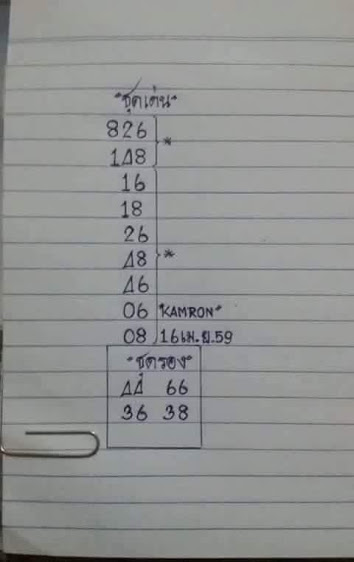 "ชุดเด่น"
826
148 *
16
18
26
48 *
46
06 KAMRON"
08 16เม.ย.59
"ชุดรอง"
44 66
36 38